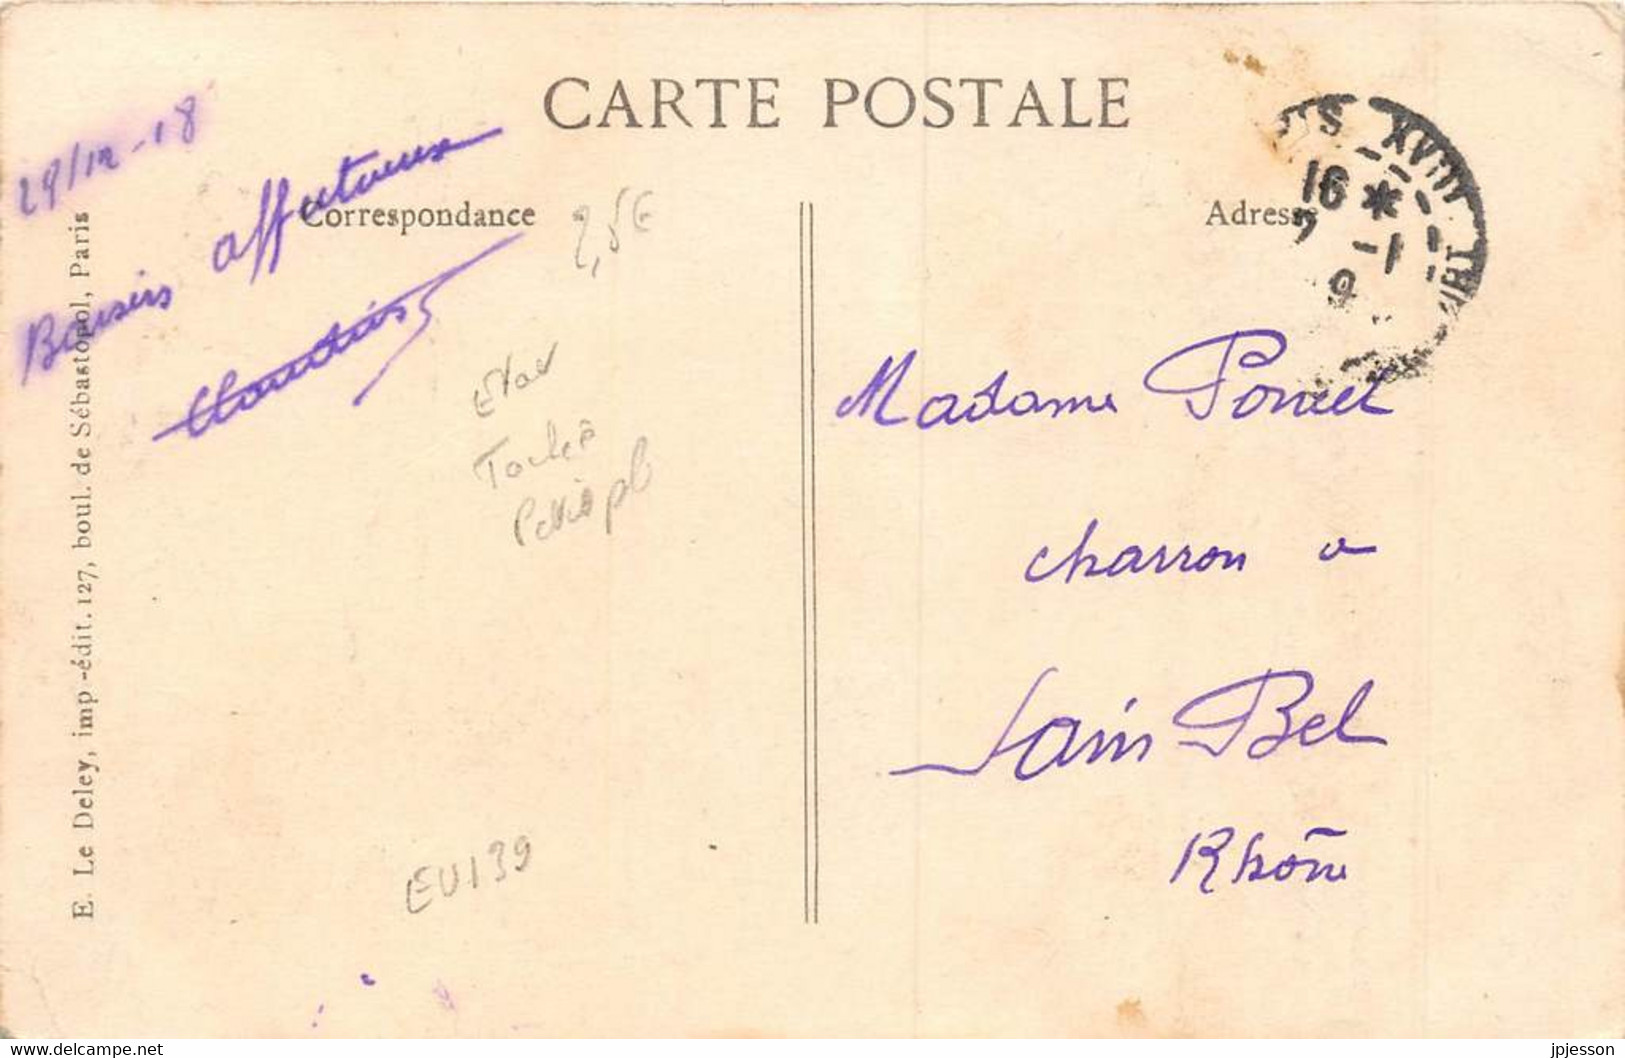 CARTE POSTALE
29/12-18
Baisers affectueux
Correspondance
2,5€
Adresse
16 *
7 -1
9
XVIII
Madame Poncet
charron a
Sain Bel
Rhône
EU139
E. Le Deley, imp-édit. 127, boul. de Sébastopol, Paris
www.delcampe.net
jpjesson